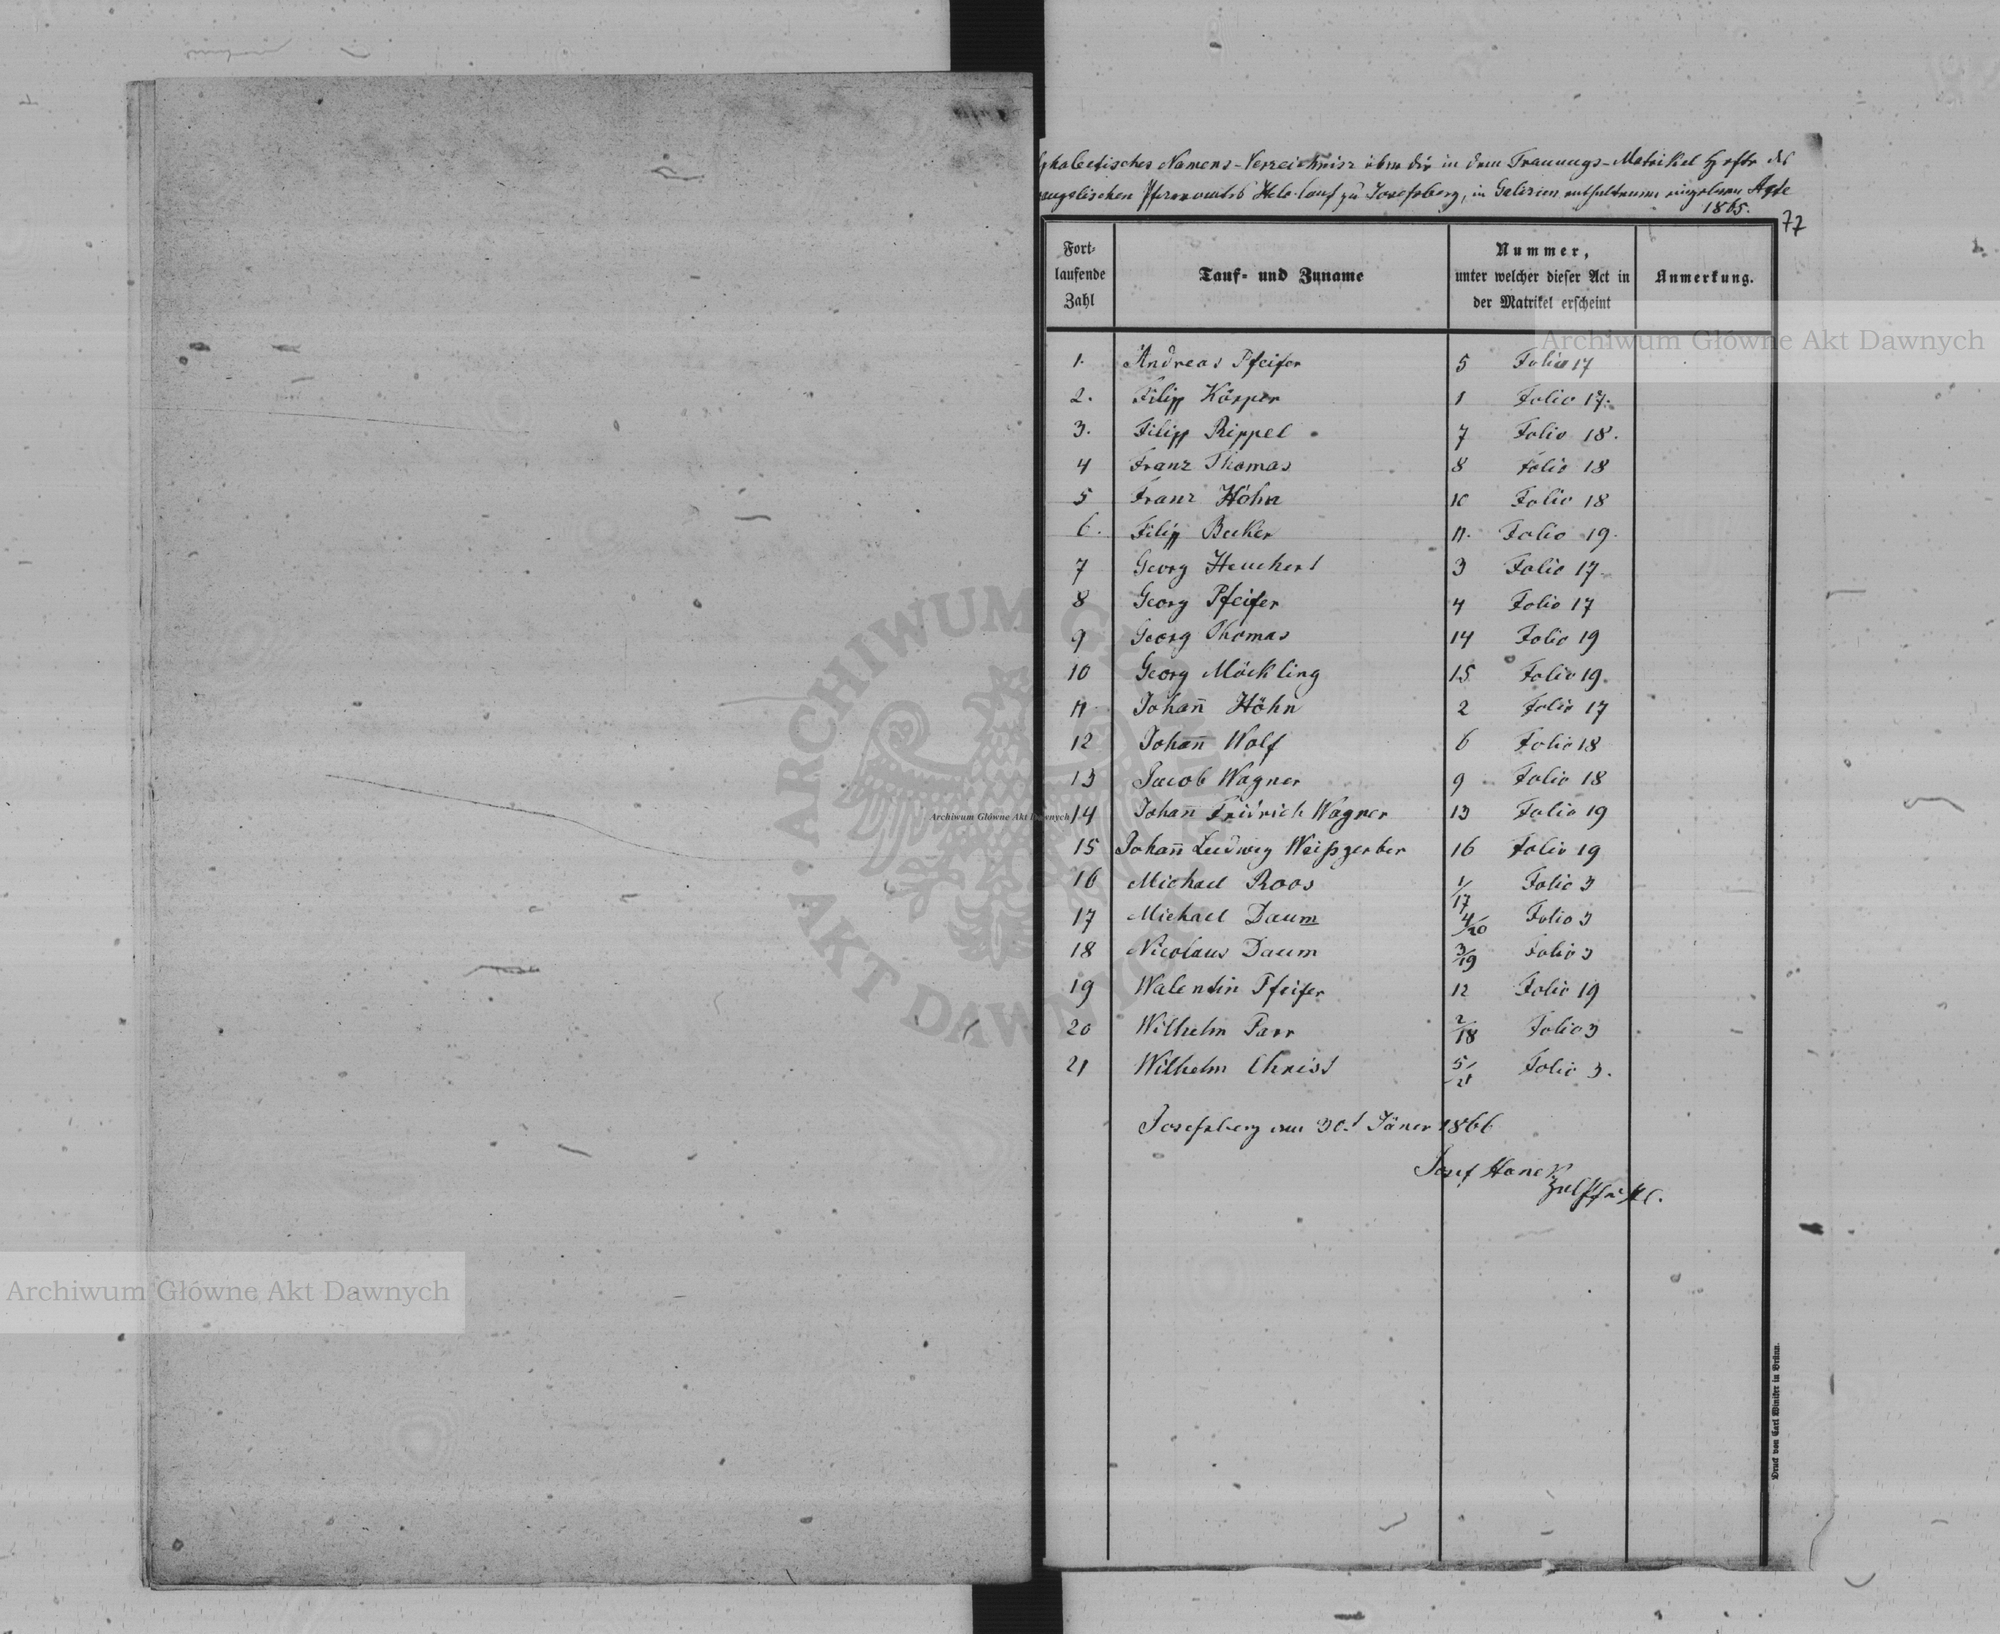 Namens-Verzeichniss über die in dem Trauungs-Matrikel Hefte des
Pfarramtes Helv. Conf. zu Josefsberg, in Galizien enthaltenen Akte
1865.
77
Fort-
laufende
Zahl
Tauf- und Zuname
Nummer,
unter welcher dieser Act in
der Matrikel erscheint
Anmerkung.
1. Andreas Pfeifer 5 Folio 17
2. Filipp Kösper 1 Folio 17.
3. Filipp Rippel 7 Folio 18.
4 Franz Thomas 8 Folio 18
5 Franz Höhn 10 Folio 18
6. Filipp Becker 11. Folio 19.
7 Georg Heuchert 3 Folio 17
8 Georg Pfeifer 4 Folio 17
9 Georg Thomas 14 Folio 19
10 Georg Möckling 15 Folio 19.
11 Johan̄ Höhn 2 Folio 17
12 Johan̄ Wolf 6 Folio 18
13 Jacob Wagner 9 Folio 18
14 Johan̄ Fridrich Wagner 13 Folio 19
15 Johan̄ Ludwig Weißgerber 16 Folio 19
16 Michael Roos 1/17 Folio 3
17 Michael Daum 4/20 Folio 3
18 Nicolaus Daum 3/19 Folio 3
19 Walentin Pfeifer 12 Folio 19
20 Wilhelm Parr 2/18 Folio 3
21 Wilhelm Christ 5/21 Folio 3.
Josefsberg am 30t Jäner 1866
Josef Hanek
Druck von Carl Winiker in Brünn.
Archiwum Główne Akt Dawnych
Archiwum Główne Akt Dawnych
Archiwum Główne Akt Dawnych
ARCHIWUM GŁÓWNE AKT DAWNYCH